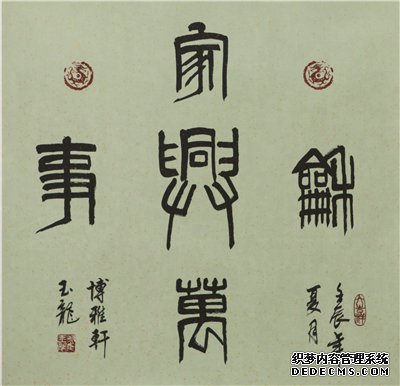 家龢萬事興
壬辰年
夏月
博雅軒
玉龍
织梦内容管理系统
DEDECMS.COM